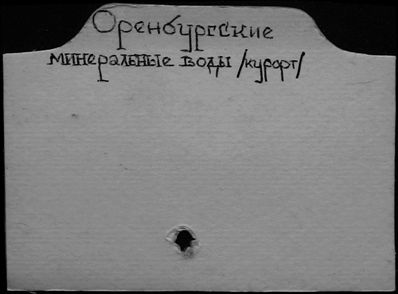 Оренбургские
минеральные воды /курорт/